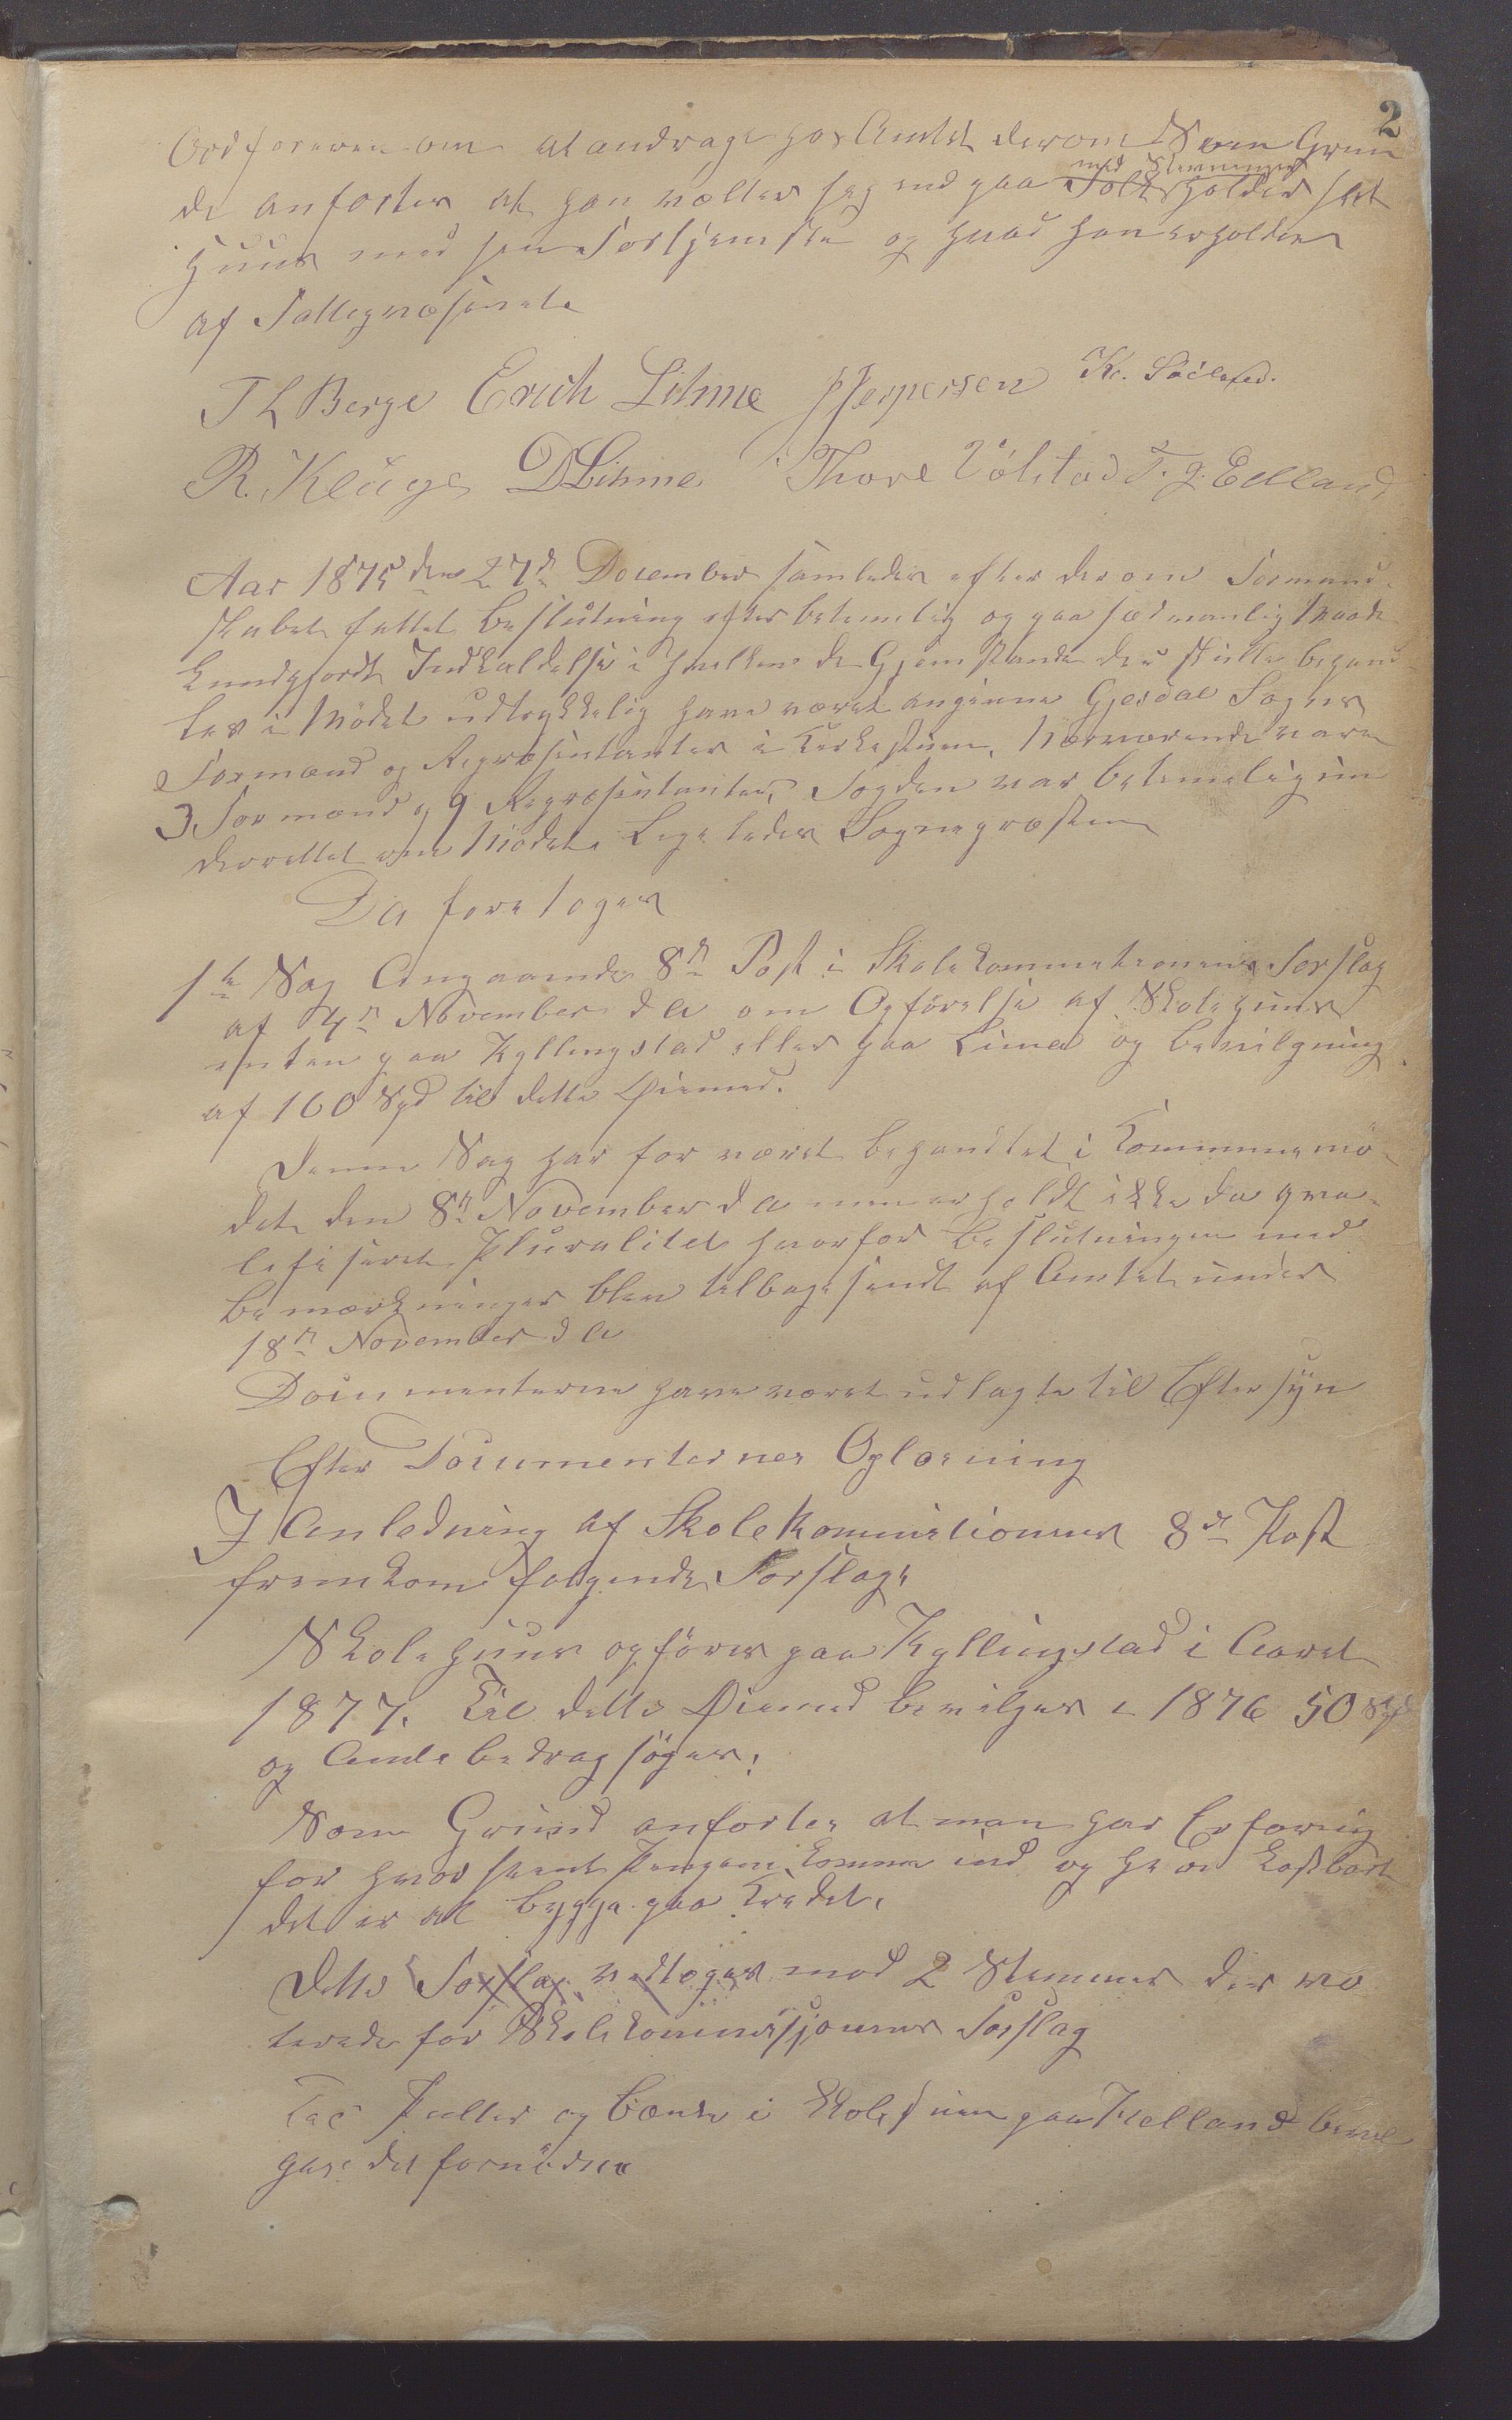 2
Ordføreren om at andrage hos Amtet derom Som Grun
med Stervningen
de anføstes at han vælter seg ind paa Folk holder slet
Huus med sin Fortjeneste og hvad han erholder
af Fattigvæsenet.
T L Berge Erich Lihme J Jespersen
R. Kluge D Lihme Thore Vølstad T. J. Edland
Aar 1875 den 27de December samledes efter derom Formand-
skabet fattet Beslutning efter betimelig og paa sædvanlig Maade
kundgjordt Indkaldelse i hvilken de Gjenstande der skulle behand-
les i Mødet udtrykkelig have været angivne Gjesdal Sogns
Formænd og Repræsentanter i Kirkestuen. Nærværende vare
3 Formænd og 9 Repræsentanter, Fogden var betimelig un
derrettet om Mødet. Ligeledes Sognepræsten
Da foretoges
1te Sag Angaaende 8de Post i Skolekommitionens Forslag
af 4de November d A om Opførelse af Skolehuus
enten paa Kyllingstad eller paa Lima og bevilgning
af 160 Spd til dette Øiemed.
Denne Sag har før været behandlet i Kommunemö-
det den 8de November d A men erholdt ikke da qva-
lifiseret Pluralitet hvorfor Beslutningen med
Bemærkninger blev tilbagesendt af Amtet under
18de November d A
Documenterne have været udlagte til Eftersyn
Efter Documenternes Oplæsning
I Anledning af Skolekommistionens 8de Post
fremkom følgende Forslag.
Skolehuus opføres paa Kyllingstad i Aaret
1877. Til dette Øiemed bevilges i 1876 50 Spd
og Amtsbedrag søges.
Som Grund anførtes at man har Erfaring
for hvor seent Pengene komme ind og hvor kostbart
det er at bygge paa Kredit.
Dette Forslag vedtoges mod 2 Stemmer der vo
terede for Skolekommisjonens Forslag
Til Pulter og Bænke i Skolestuen paa Kelland bevil
gese det fornødne